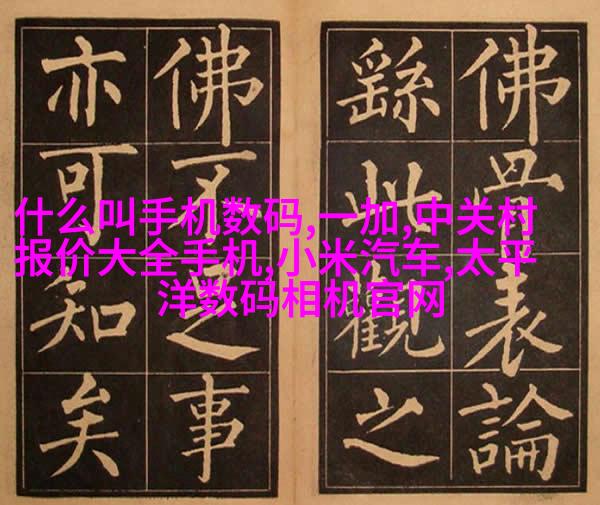 佛骨表論
繇此觀之
佛不足事
亦可知矣
什么叫手机数码,一加,中关村
报价大全手机,小米汽车,太平
洋数码相机官网